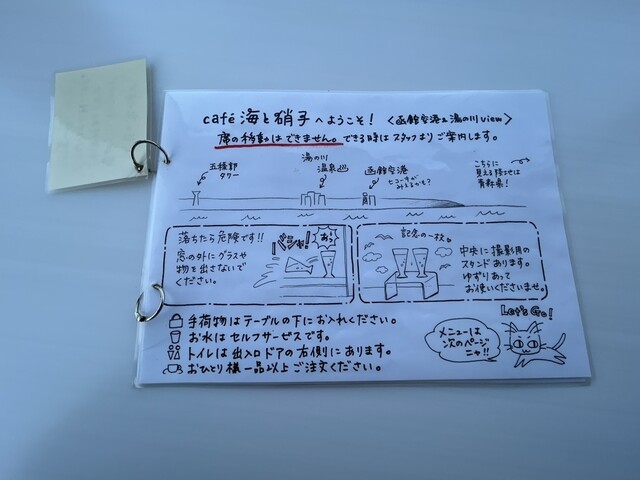 café 海と硝子へようこそ！〈函館空港&湯の川view〉
席の移動はできません。できる時はスタッフよりご案内します。
五稜郭
タワー
湯の川
温泉♨
函館空港
ヒコーキが
みえるかも？
こちらに
見える陸地は
青森県！
落ちたら危険です!!
窓の外にグラスや
物を出さないで
ください。
バシャ!
あっ
記念の一枚。
中央に撮影用の
スタンドあります。
ゆずりあって
お使いくださいませ。
手荷物はテーブルの下にお入れください。
お水はセルフサービスです。
トイレは出入口ドアの右側にあります。
おひとり様一品以上ご注文ください。
Let's Go!
メニューは
次のページ
ニャ!!